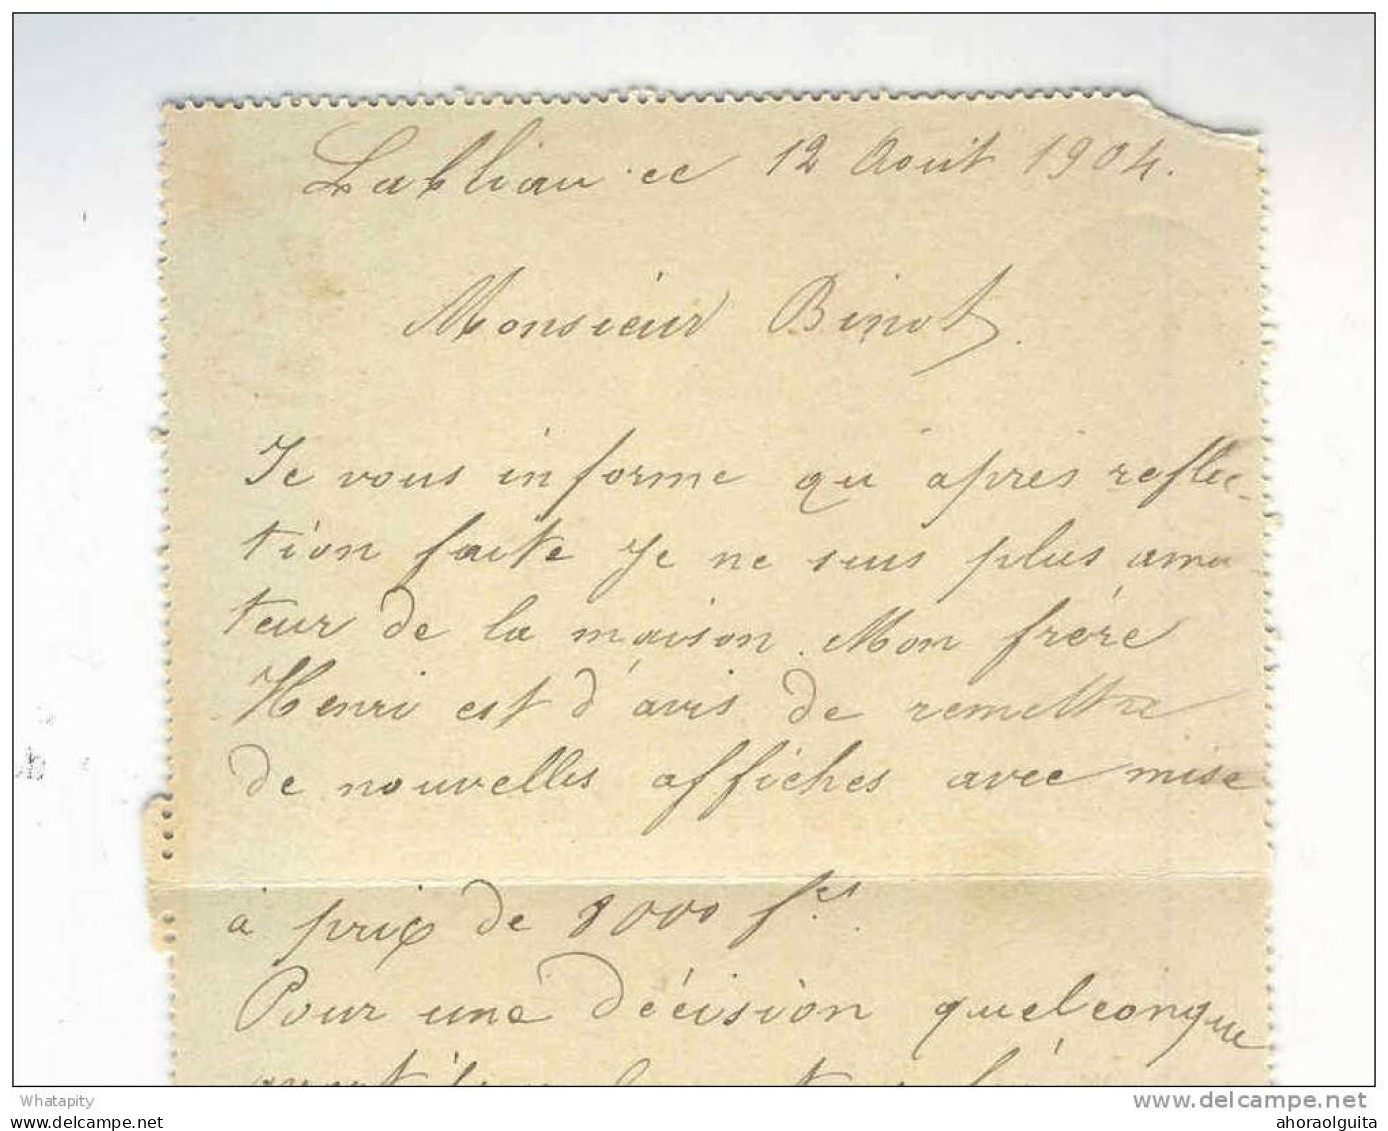 Labliau ce 12 Août 1904.
Monsieur Binot
Je vous informe qu après reflec-
tion faite Je ne suis plus ama-
teur de la maison. Mon frère
Henri est d'avis de remettre
de nouvelles affiches avec mise
à prix de 8000 f.cs
Pour une décision quelconque
Whatapity
www.delcampe.net
ahoraolguita